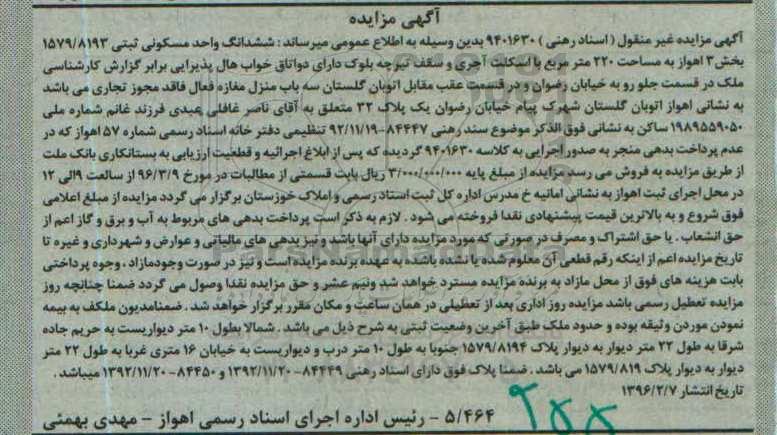 آگهی مزایده
آگهی مزایده غیر منقول ( اسناد رهنی ) ۹۴۰۱۶۳۰ بدین وسیله به اطلاع عمومی میرساند : ششدانگ واحد مسکونی ثبتی ۱۵۷۹/۸۱۹۳
بخش۳ اهواز به مساحت ۲۲۰ متر مربع با اسکلت آجری و سقف تیرچه بلوک دارای دواتاق خواب هال پذیرایی برابر گزارش کارشناسی
ملک در قسمت جلو رو به خیابان رضوان و در قسمت عقب مقابل اتوبان گلستان سه باب منزل مغازه فعال فاقد مجوز تجاری می باشد
به نشانی اهواز اتوبان گلستان شهرک پیام خیابان رضوان یک پلاک ۳۲ متعلق به آقای ناصر غافلی عبدی فرزند غانم شماره ملی
۱۹۸۹۵۵۹۰۵۰ ساکن به نشانی فوق الذکر موضوع سند رهنی ۸۴۴۴۷-۹۲/۱۱/۱۹ تنظیمی دفتر خانه اسناد رسمی شماره ۵۷ اهواز که در
عدم پرداخت بدهی منجر به صدور اجرایی به کلاسه ۹۴۰۱۶۳۰ گردیده که پس از ابلاغ اجرائیه و قطعیت ارزیابی به بستانکاری بانک ملت
از طریق مزایده به فروش می رسد مزایده از مبلغ پایه ۳/۰۰۰/۰۰۰/۰۰۰ ریال بابت قسمتی از مطالبات در مورخ ۹۶/۳/۹ از سالعت ۹الی ۱۲
در محل اجرای ثبت اهواز به نشانی امانیه خ مدرس اداره کل ثبت اسناد رسمی و املاک خوزستان برگزار می گردد مزایده از مبلغ اعلامی
فوق شروع و به بالاترین قیمت پیشنهادی نقدا فروخته می شود . لازم به ذکر است پرداخت بدهی های مربوط به آب و برق و گاز اعم از
حق انشعاب . یا حق اشتراک و مصرف در صورتی که مورد مزایده دارای آنها باشد و نیز بدهی های مالیاتی و عوارض و شهرداری و غیره تا
تاریخ مزایده اعم از اینکه رقم قطعی آن معلوم شده یا نشده باشد، به عهده برنده مزایده است و نیز در صورت وجودمازاد ، وجوه پرداختی
بابت هزینه های فوق از محل مازاد به برنده مزایده مسترد خواهد شد ونیم عشر و حق مزایده نقدا وصول می گردد ضمنا چنانچه روز
مزایده تعطیل رسمی باشد مزایده روز اداری بعد از تعطیلی در همان ساعت و مکان مقرر برگزار خواهد شد . ضمنامدیون ملکف به بیمه
نمودن موردن وثیقه بوده و حدود ملک طبق آخرین وضعیت ثبتی به شرح ذیل می باشد . شمالا بطول ۱۰ متر دیواریست به حریم جاده
شرقا به طول ۲۲ متر دیوار به دیوار پلاک ۱۵۷۹/۸۱۹۴ جنوبا به طول ۱۰ متر درب و دیواریست به خیابان ۱۶ متری غربا به طول ۲۲ متر
دیوار به دیوار پلاک ۱۵۷۹/۸۱۹ می باشد . ضمنا پلاک فوق دارای اسناد رهنی ۸۴۴۴۹-۱۳۹۲/۱۱/۲۰ و ۸۴۴۵۰-۱۳۹۲/۱۱/۲۰ میباشد .
تاریخ انتشار ۱۳۹۶/۲/۷
۵/۴۶۴ - رئیس اداره اجرای اسناد رسمی اهواز - مهدی بهمئی